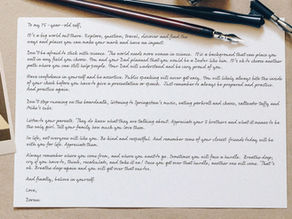 To my 15-year-old self,
It's a big world out there. Explore, question, travel, discover and find the
ways and places you can make your mark and have an impact.
Don't be afraid to stick with science. The world needs more women in science. It is a background that can place you
well in any field you choose. You and your Dad planned that you would be a Doctor like him. It's ok to choose another
path where you can still help people. Your Dad will understand and be very proud of you.
Have confidence in yourself and be assertive. Public speaking will never get easy. You will likely always hate the sounds
of your shoes before you have to give a presentation or speech. Just remember to always be prepared and practice.
And practice again.
Don't stop running on the boardwalk, listening to Springsteen's music, eating porkroll and cheese, saltwater taffy and
Mike's subs.
Listen to your parents. They do know what they are talking about. Appreciate your 5 brothers and what it means to be
the only girl. Tell your family how much you love them.
In life, not everyone will like you. Be kind and respectful. And remember some of your closest friends today will be
with you for life. Appreciate them.
Always remember where you come from, and where you want to go. Sometimes you will face a hurdle. Breathe deep,
cry if you have to, think, recalculate, and take it on! Once you get over that hurdle, another one will come. That's
ok. Breathe deep again and you will get over that one too.
And finally, believe in yourself.
Love,
Doreen